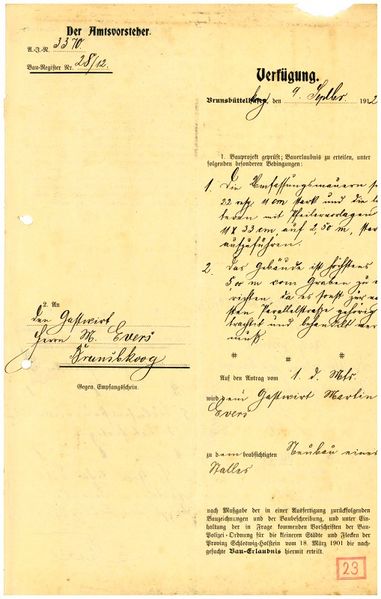 Der Amtsvorsteher.
A.-J.-N. 3370.
Bau-Register Nr. 28/12.
Verfügung.
Brunsbüttel den 9. Septbr 1912
1. Bauprojekt geprüft; Bauerlaubnis zu erteilen, unter
folgenden besonderen Bedingungen:
1. Die Umfassungsmauern
22 resp. 11 cm stark und die
mit Pfeilervorlagen
33 cm, auf 2,50 m,
aufzuführen.
2. Das Gebäude ist höchstens
5,00 m vom Graben zu
richten, da es sonst zur
Parallelstraße gehörig
trachtet und behandelt
muß.
2. An
den Gastwirt
Herrn M. Evers
Brunsbkoog
Gegen Empfangschein.
* * *
Auf den Antrag vom 1. d. Mts
wird dem Gastwirt Martin
Evers
zu dem beabsichtigten Neubau eines
Stalles
nach Maßgabe der in einer Ausfertigung zurückfolgenden
Bauzeichnungen und der Baubeschreibung, und unter Ein-
haltung der in Frage kommenden Vorschriften der Bau-
Polizei-Ordnung für die kleineren Städte und Flecken der
Provinz Schleswig-Holstein vom 18. März 1901 die nach-
gesuchte Bau-Erlaubnis hiermit erteilt.
23